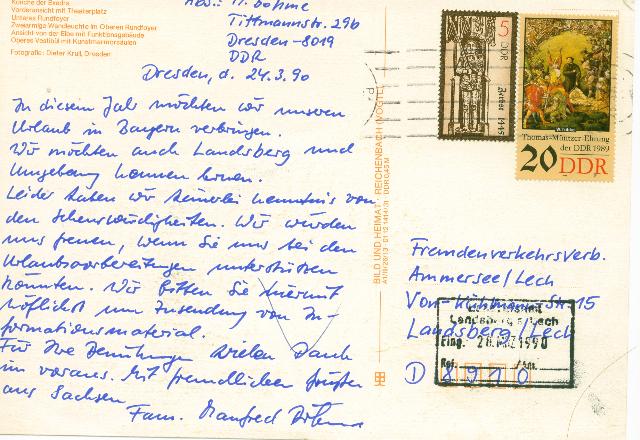 Vorderansicht mit Theaterplatz
Unteres Rundfoyer
Zweiarmige Wandleuchte im Oberen Rundfoyer
Ansicht von der Elbe mit Funktionsgebäude
Oberes Vestibül mit Kunstmarmorsäulen
Fotografie: Dieter Krull, Dresden
Abs.: M. Böhme
Tittmannstr. 29b
Dresden-8019
DDR
Dresden, d. 24.3.90
In diesem Jahr möchten wir unseren
Urlaub in Bayern verbringen.
Wir möchten auch Landsberg und
Umgebung kennen lernen.
Leider haben wir keinerlei Kenntnis von
den Sehenswürdigkeiten. Wir würden
uns freuen, wenn Sie uns bei den
Urlaubsvorbereitungen unterstützen
könnten. Wir bitten Sie hiermit
höflichst um Zusendung von In-
formationsmaterial.
Für Ihre Bemühungen vielen Dank
im voraus. Mit freundlichen Grüßen
aus Sachsen
Fam. Manfred Böhme
BILD UND HEIMAT REICHENBACH (VOGTL)
5 DDR
Thomas-Müntzer-Ehrung
der DDR 1989
20 DDR
Fremdenverkehrsverb.
Ammersee/Lech
Von-Kühlmann-Str. 15
Landsberg/Lech
D 8910
Landsberg a. Lech
Eing. 28. MRZ 1990